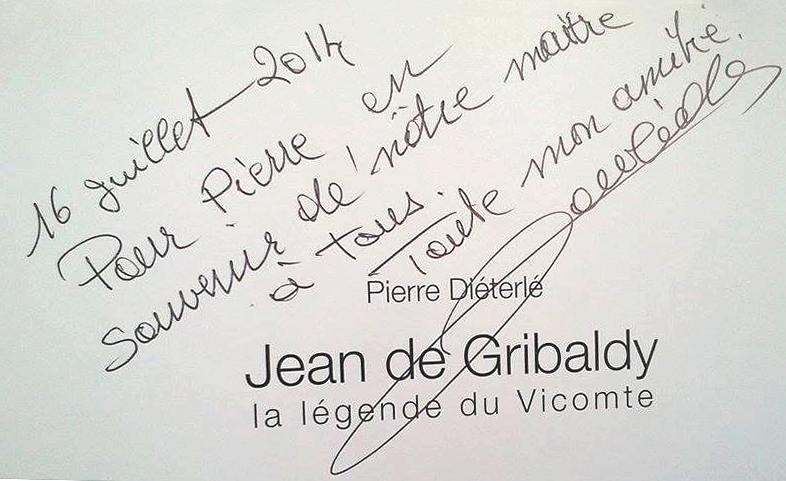 16 juillet 2014
Pour Pierre en
souvenir de nôtre maître
à tous.
Toute mon amitié.
Pierre Diéterlé
Jean de Gribaldy
la légende du Vicomte